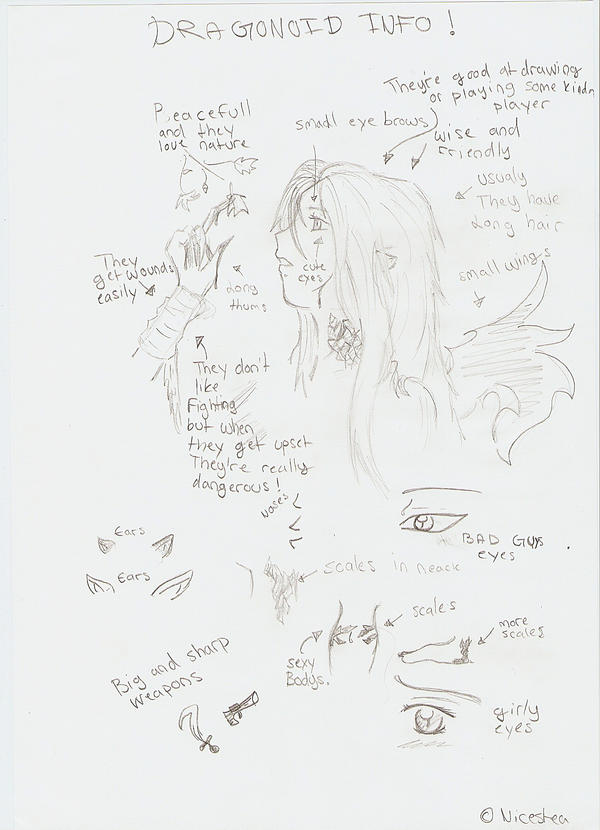 DRAGONOID INFO !
They're good at drawing
or playing some kinda
player
Peacefull
and they
love nature
small eye brows
wise and
friendly
usualy
They have
Long hair
small wings
They
get wounds
easily
Long
thums
cute
eyes
They don't
like
Fighting
but when
they get upset
They're really
dangerous!
noses
BAD GUYS
eyes
Ears
Ears
scales in neack
scales
more
scales
sexy
Bodys.
Big and sharp
weapons
girly
eyes
© Nicestea